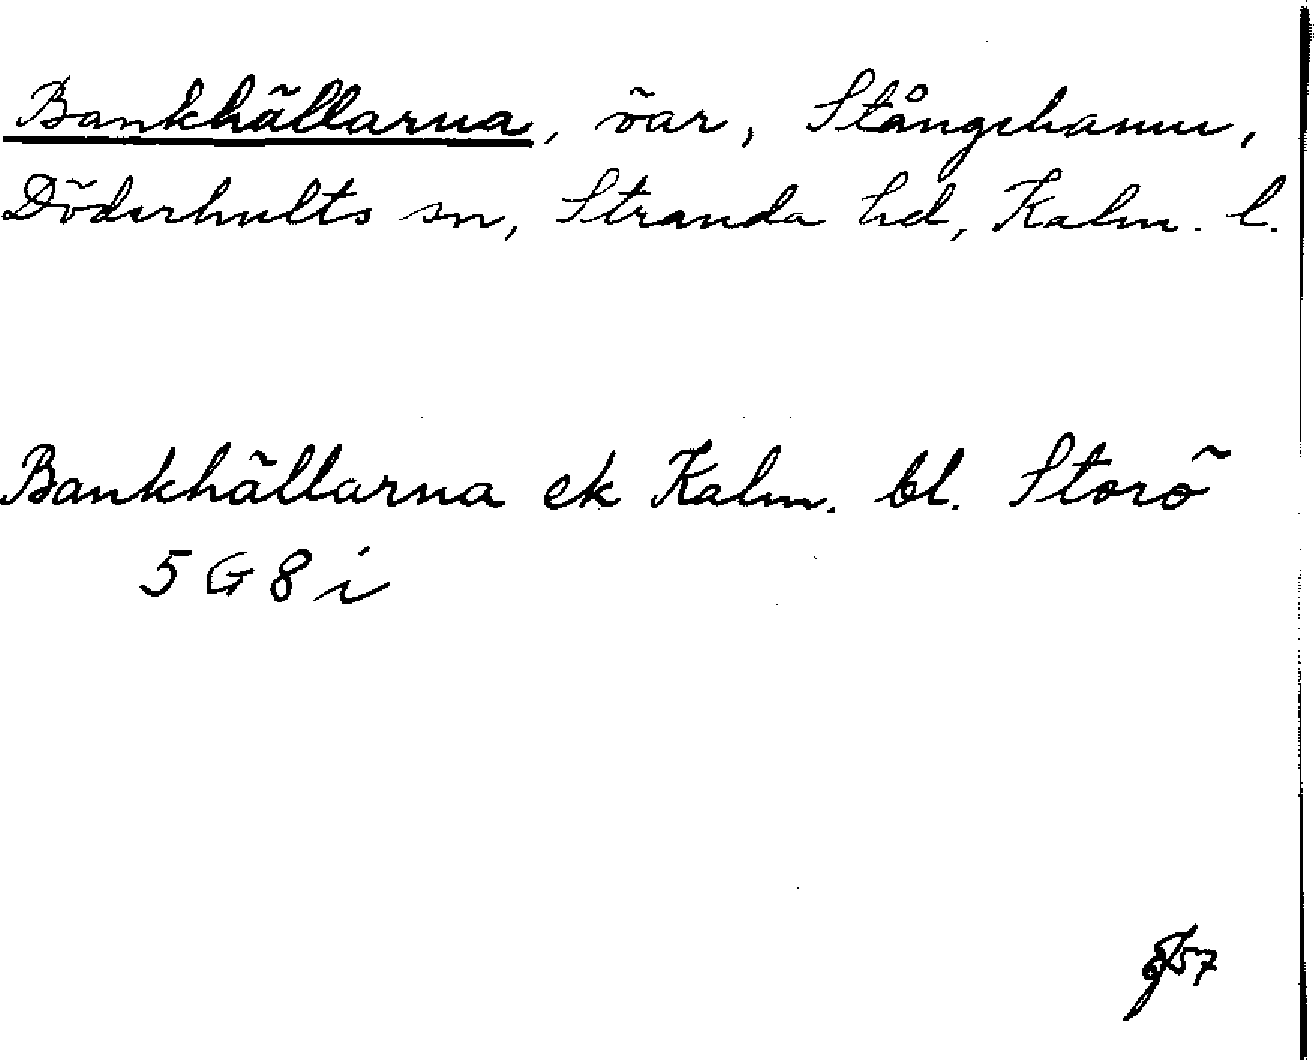 Bankhällarna, öar, Stångehamn,
Döderhults sn, Stranda hd, Kalm. l.
Bankhällarna ek Kalm. bl. Storö
5 G 8 i
57